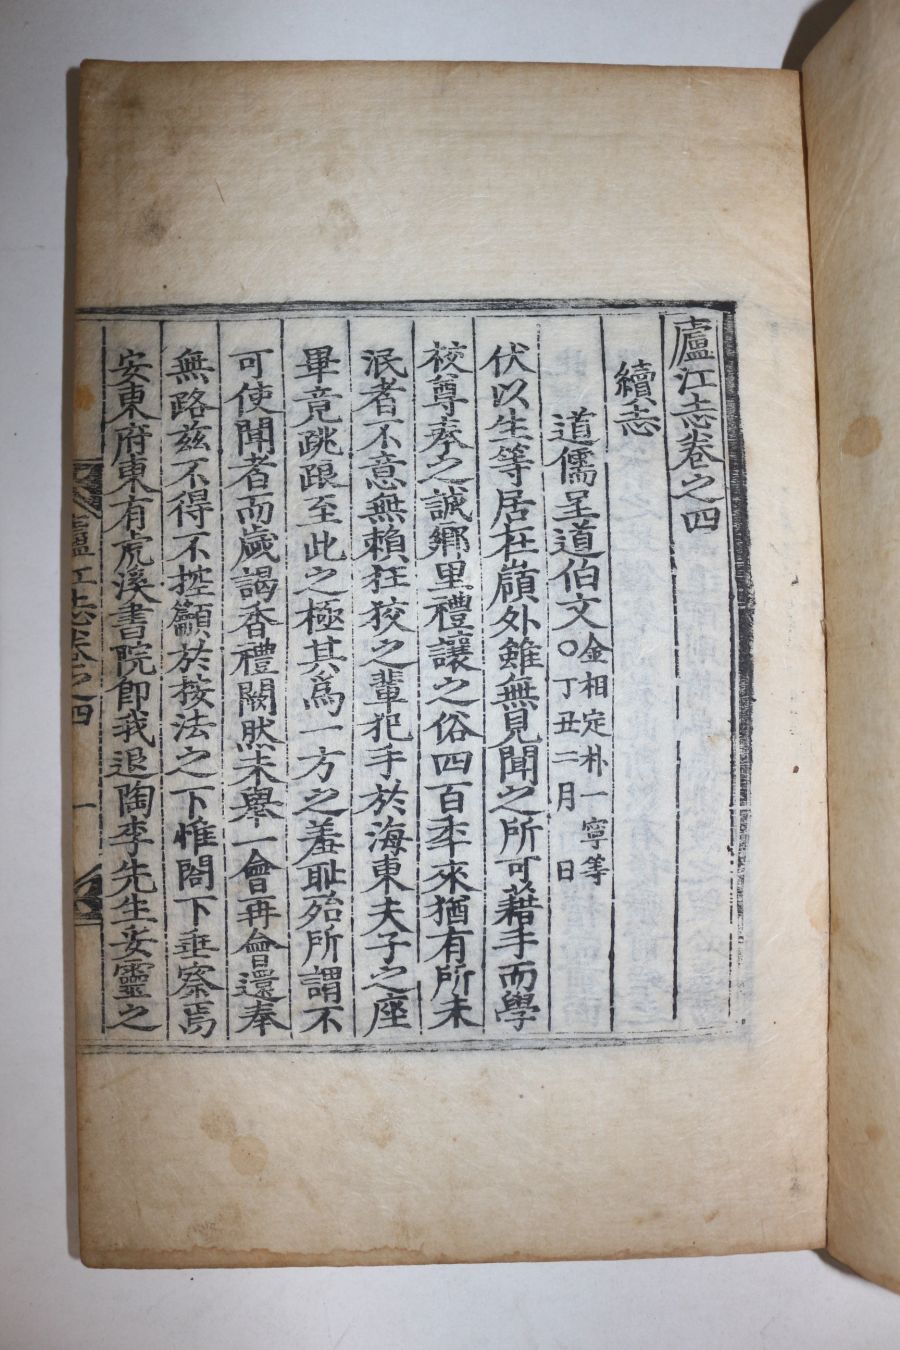 廬江志卷之四
續志
道儒呈道伯文 金相定朴一寧等
○丁丑二月 日
伏以生等居在嶺外雖無見聞之所可藉手而學
校尊奉之誠鄉里禮讓之俗四百年來猶有所未
泯者不意無賴狂狡之輩犯手於海東夫子之座
畢竟跳踉至此之極其爲一方之羞耻殆所謂不
可使聞者而歲謁香禮闕然未舉一會再會還奉
無路玆不得不控籲於按法之下惟閤下垂察焉
安東府東有虎溪書院卽我退陶李先生妥靈之
廬江志卷之四 一